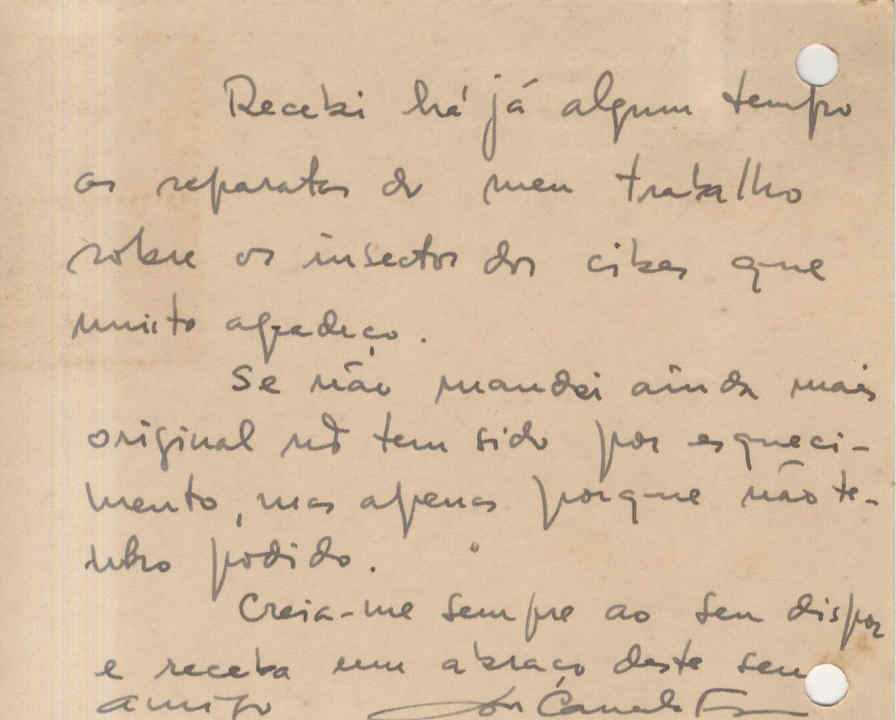 Recebi há já algum tempo
as separatas do meu trabalho
sôbre os insectos dos
que
muito agradeço.
Se não mandei ainda mais
original não tem sido por esqueci-
mento, mas apenas porque não te-
nho podido.
Creia-me sempre ao seu dispor
e receba um abraço deste seu
amigo